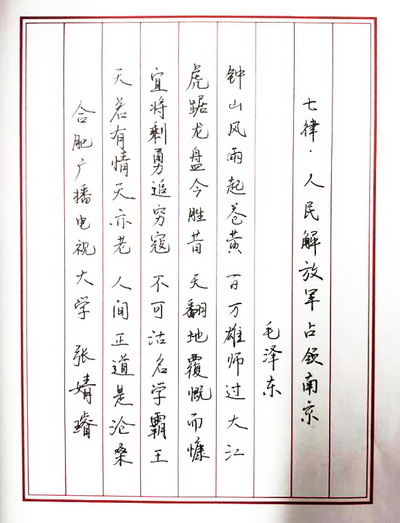 七律·人民解放军占领南京
毛泽东
钟山风雨起苍黄 百万雄师过大江
虎踞龙盘今胜昔 天翻地覆慨而慷
宜将剩勇追穷寇 不可沽名学霸王
天若有情天亦老 人间正道是沧桑
合肥广播电视大学 张婧璿